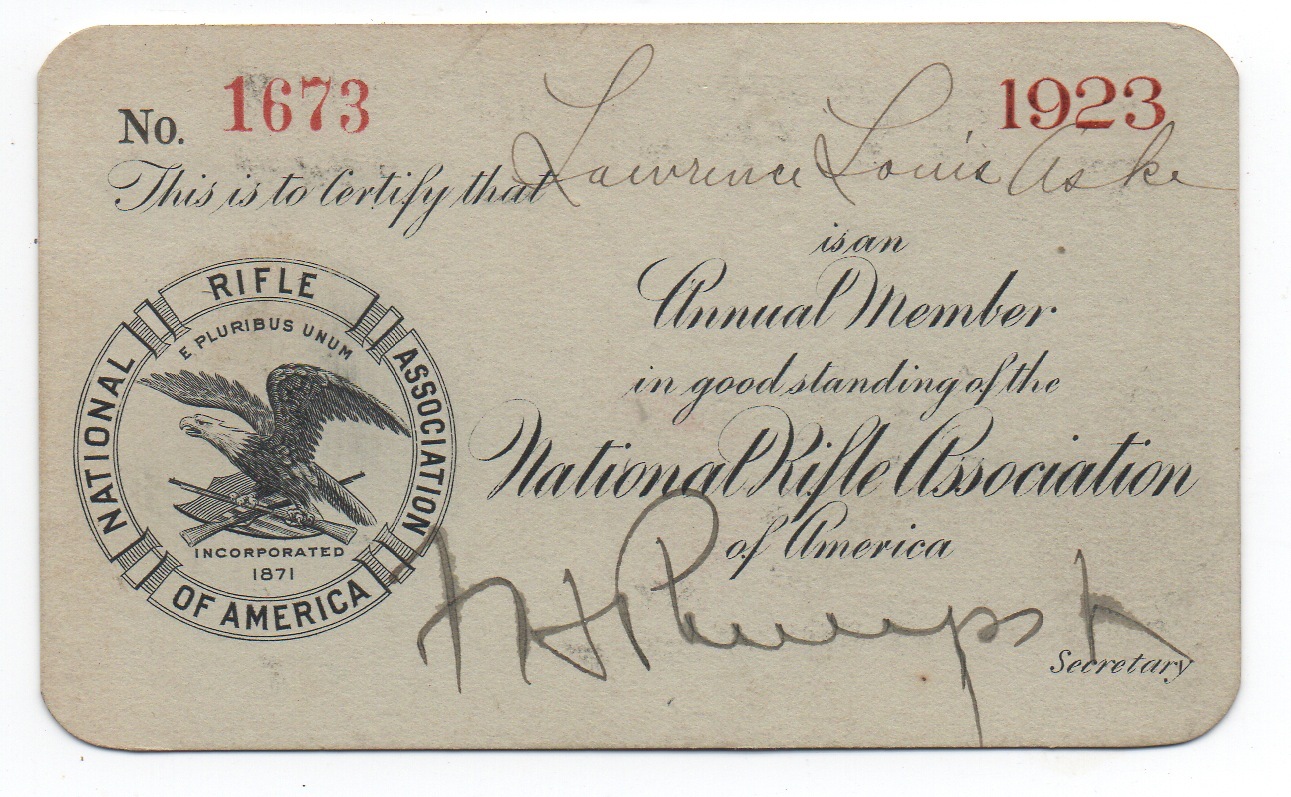 No. 1673
1923
This is to Certify that Lawrence Louis Aske
is an
Annual Member
in good standing of the
National Rifle Association
of America
Secretary
NATIONAL RIFLE ASSOCIATION OF AMERICA
E PLURIBUS UNUM
INCORPORATED
1871